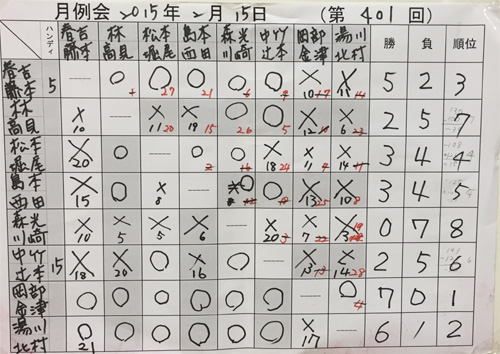 月例会 2015年 2月 15日 (第 401 回)
ハンディ 春吉 藤本 林 高見 松本 堀尾 島本 西田 森光 川崎 中竹 辻本 岡部 金津 湯川 北村 勝 負 順位
春吉 藤本 5 ---- ○ ○27 ○21 ○ ○ ×10 × 14 5 2 3
林 高見 ×10 ---- ×11 20 ×19 15 ○26 ○5 ×12 ×6 23 2 5 7
松本 堀尾 ×20 ○ ---- ○ ○ ×18 24 ×11 ×14 3 4 4
島本 西田 ×15 ○ ×8 ---- ○ ○ ×13 25 ×10 8 3 4 5
森光 川崎 ×10 ×5 ×5 ×6 ---- ×20 ×7 ×13 0 7 8
中竹 辻本 15 ×18 ×20 ○ ×16 ○ ---- ×13 ×14 28 2 5 6
岡部 金津 ○ ○ ○ ○ ○ ○ ---- ○4 7 0 1
湯川 北村 ○21 ○ ○ ○ ○ ○ ×17 ---- 6 1 2